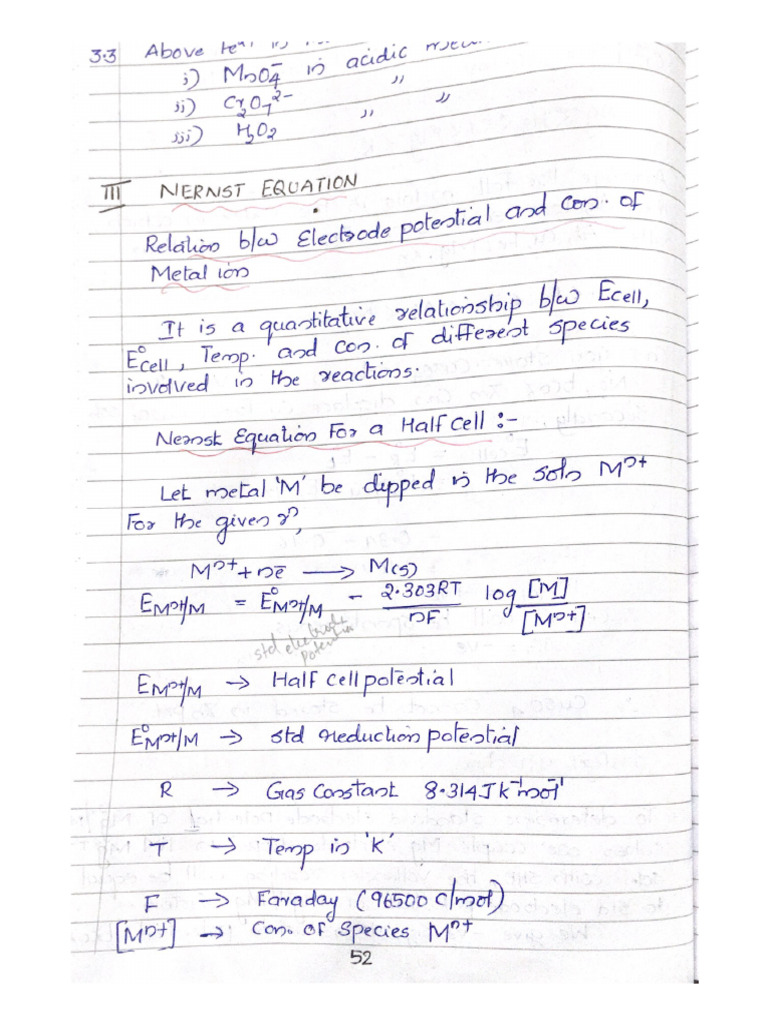 3.3 Above
i) MnO4⁻ in acidic
ii) Cr2O7²⁻ " "
iii) H2O2 "
III NERNST EQUATION
Relation b/w Electrode potential and con. of
Metal ion
It is a quantitative relationship b/w Ecell,
E°cell, Temp. and con. of different species
involved in the reactions.
Nernst Equation For a Half cell :-
Let metal 'M' be dipped in the soln Mⁿ⁺
For the given rⁿ,
Mⁿ⁺ + nē → M(s)
E Mⁿ⁺/M = E° Mⁿ⁺/M - 2.303RT/nF log [M]/[Mⁿ⁺]
std electrode
potential
E Mⁿ⁺/M → Half cell potential
E° Mⁿ⁺/M → std reduction potential
R → Gas Constant 8.314Jk⁻¹mol⁻¹
T → Temp in 'K'
F → Faraday (96500 C/mol)
[Mⁿ⁺] → Con. of Species Mⁿ⁺
52